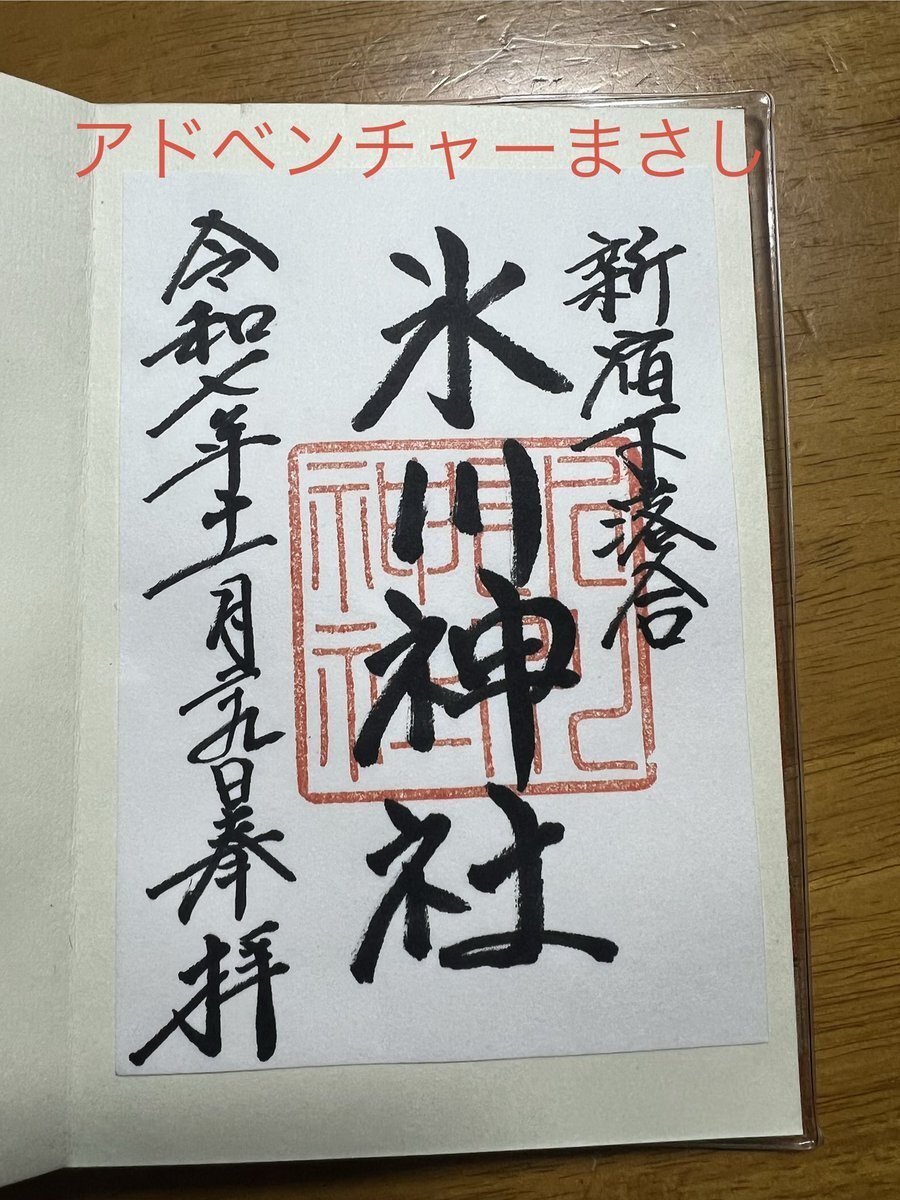 アドベンチャーまさし
新宿下落合
氷川神社
令和七年十一月二十九日奉拝